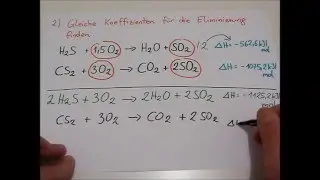 2) Gleiche Koeffizienten für die Eliminierung
finden
H₂S + 1,5O₂ → H₂O + SO₂ /·2 ΔH = -562,6 kJ/mol
CS₂ + 3O₂ → CO₂ + 2SO₂ ΔH = -1075,2 kJ/mol
2H₂S + 3O₂ → 2H₂O + 2SO₂ ΔH = -1125,2 kJ/mol
CS₂ + 3O₂ → CO₂ + 2SO₂ ΔH